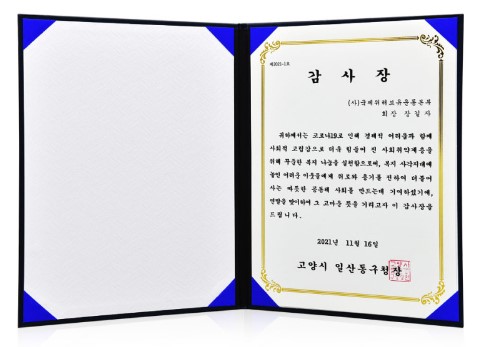 제2021-1호
감 사 장
(사)국제위러브유운동본부
회장 장길자
귀하께서는 코로나19로 인해 경제적 어려움과 함께
사회적 고립감으로 더욱 힘들어 진 사회취약계층을
위해 꾸준한 복지 나눔을 실천함으로써, 복지 사각지대에
놓인 어려운 이웃들에게 위로와 용기를 전하여 더불어
사는 따뜻한 공동체 사회를 만드는데 기여하셨기에,
연말을 맞이하여 그 고마운 뜻을 기리고자 이 감사장을
드립니다.
2021년 11월 16일
고양시 일산동구청장